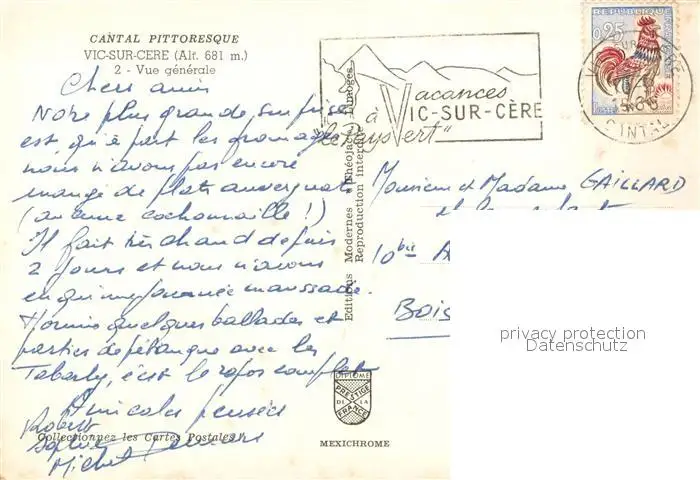 CANTAL PITTORESQUE
VIC-SUR-CERE (Alt. 681 m.)
2 - Vue générale
Chers amis
Notre plus grande surprise
est, qu'à part les fromages
nous n'avons pas encore
mangé de plats auvergnats
(aucune cochonnaille !)
Il fait très chaud depuis
2 jours et nous n'avons
eu qu'une journée maussade.
Hormis quelques ballades et
parties de pétanque avec les
Taberly, c'est le repos complet
Amicales pensées
Michel
Collectionnez les Cartes Postales
Editions Modernes Théojac, Limoges
Reproduction Inter
Vacances
à VIC-SUR-CÈRE
"le Pays Vert"
REPUBLIQUE
0,25
CANTAL
Monsieur et Madame GAILLARD
10 bis A
BOIS
DIPLOME
PRESTIGE
DE LA
FRANCE
MEXICHROME
privacy protection
Datenschutz